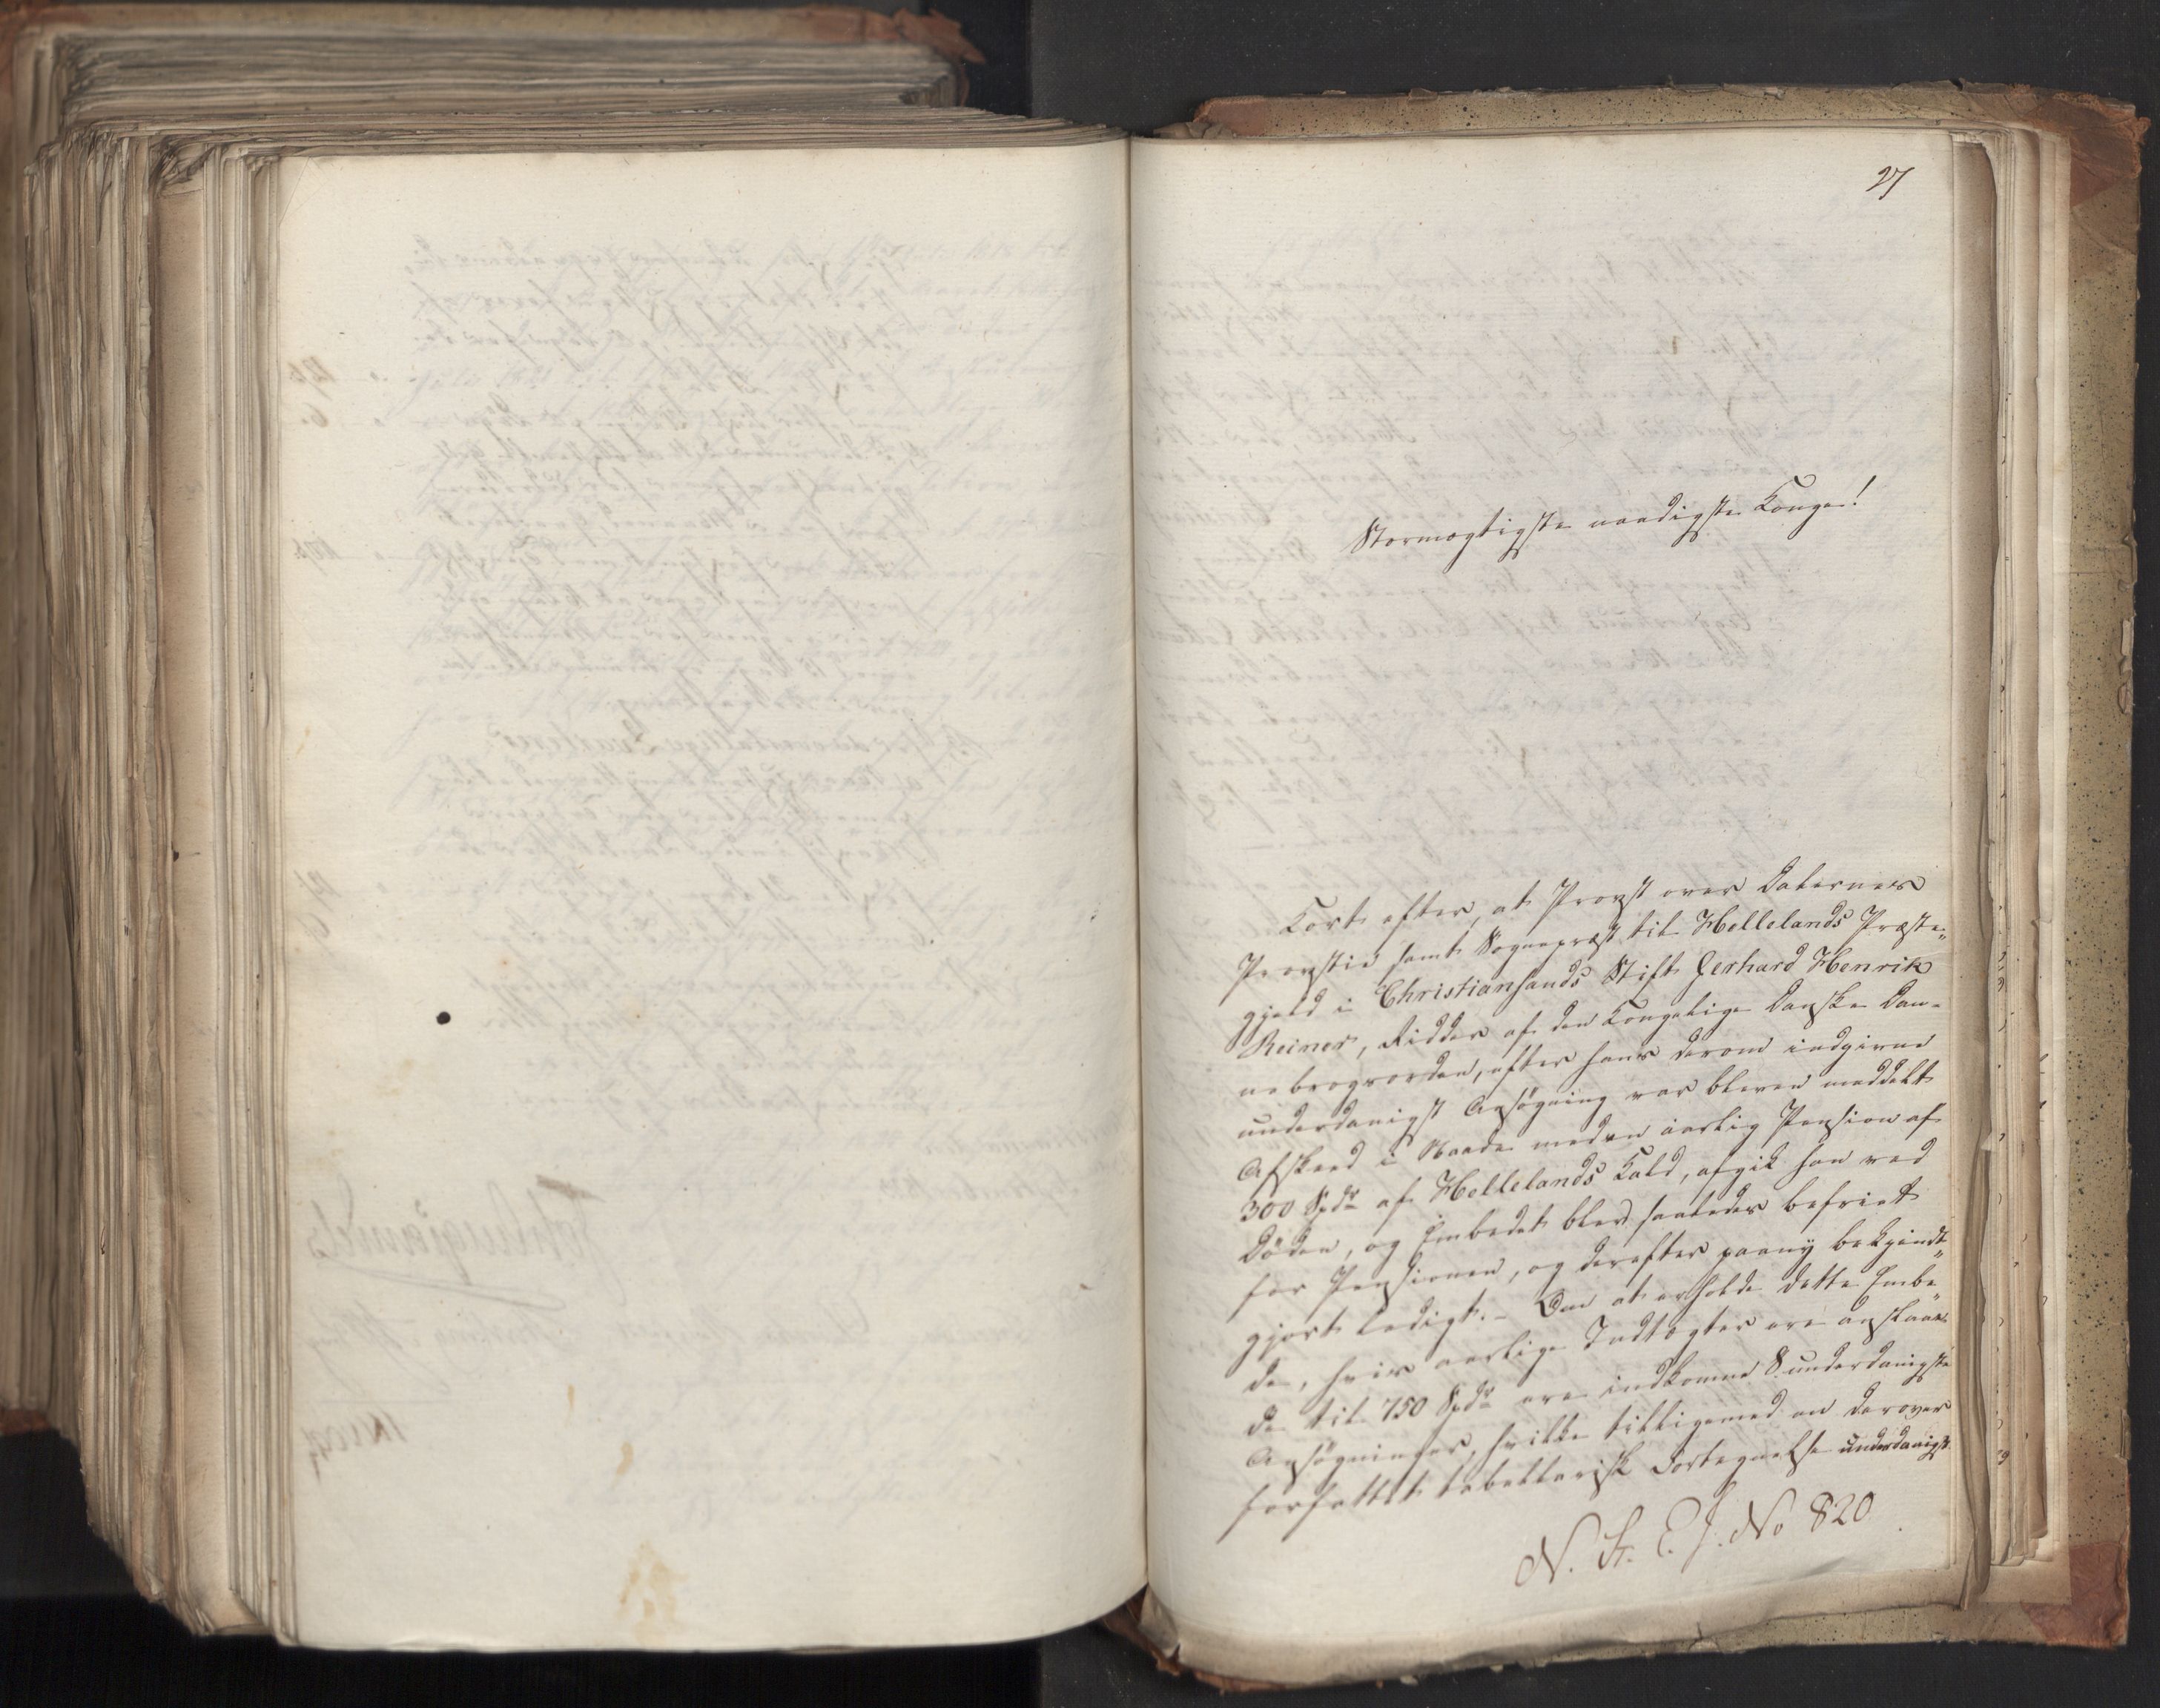 27
Stormægtigste naadigste Konge!
Kort efter, at Provst over Dalernes
Provstie samt Sognepræst til Hellelands Præste„
gjeld i Christiansands Stift Gerhard Henrik
Reiner, Ridder af den Kongelige Danske Dan-
nebrogsorden, efter hans derom indgivne
underdanigst Ansøgning var bleven meddelt
Afskeed i Naade med en aarlig Pension af
300 Spdr af Hellelands Kald, afgik han ved
Døden, og Embedet blev saaledes befriet
for Pensionen, og derefter paany bekjendt„
gjort ledigt. – Om at erholde dette Embe„
de, hvis aarlige Indtægter ere anslaae
de til 750 Spdr ere indkomne 8 underdanigste
Ansøgninger, hvilke tilligemed en derover
forfattet tabellarisk Fortegnelse underdanigst
N. St. E. J. No 820